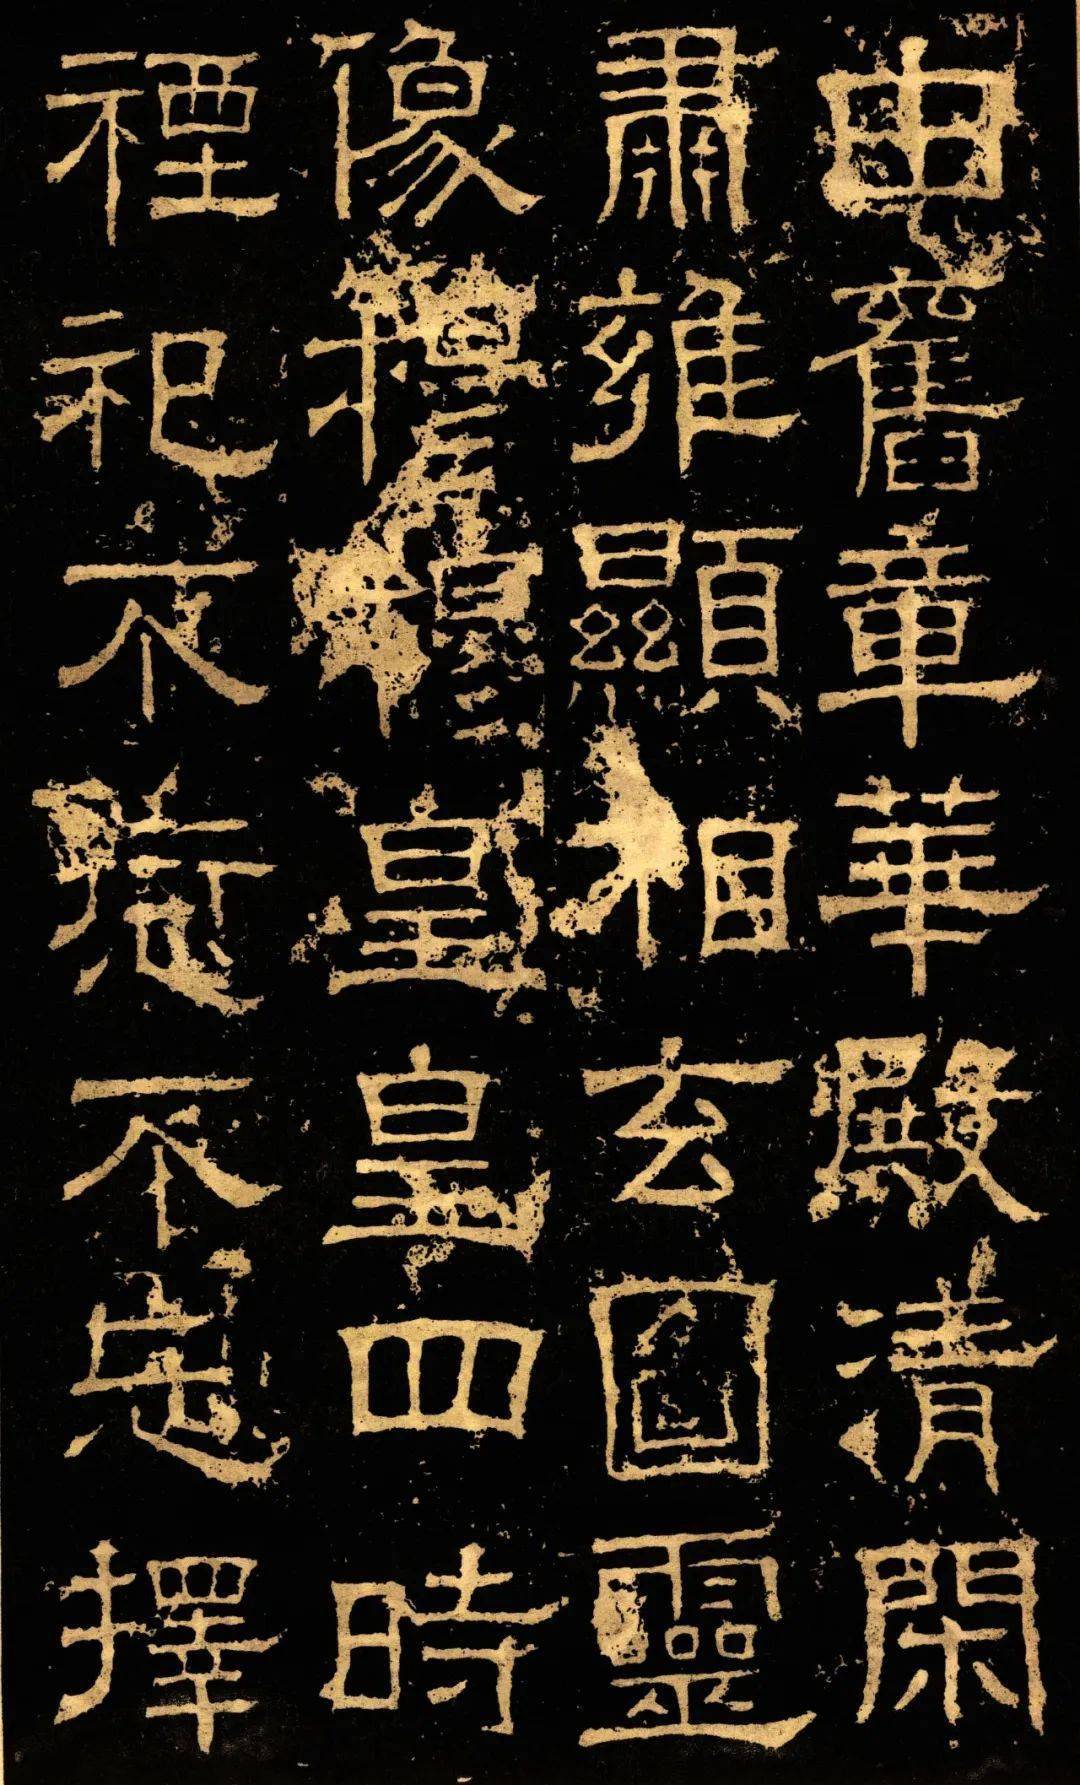 由舊章華殿清閑
肅雍顯相玄圖靈
像穆穆皇皇四時
禋祀不愆不忘擇